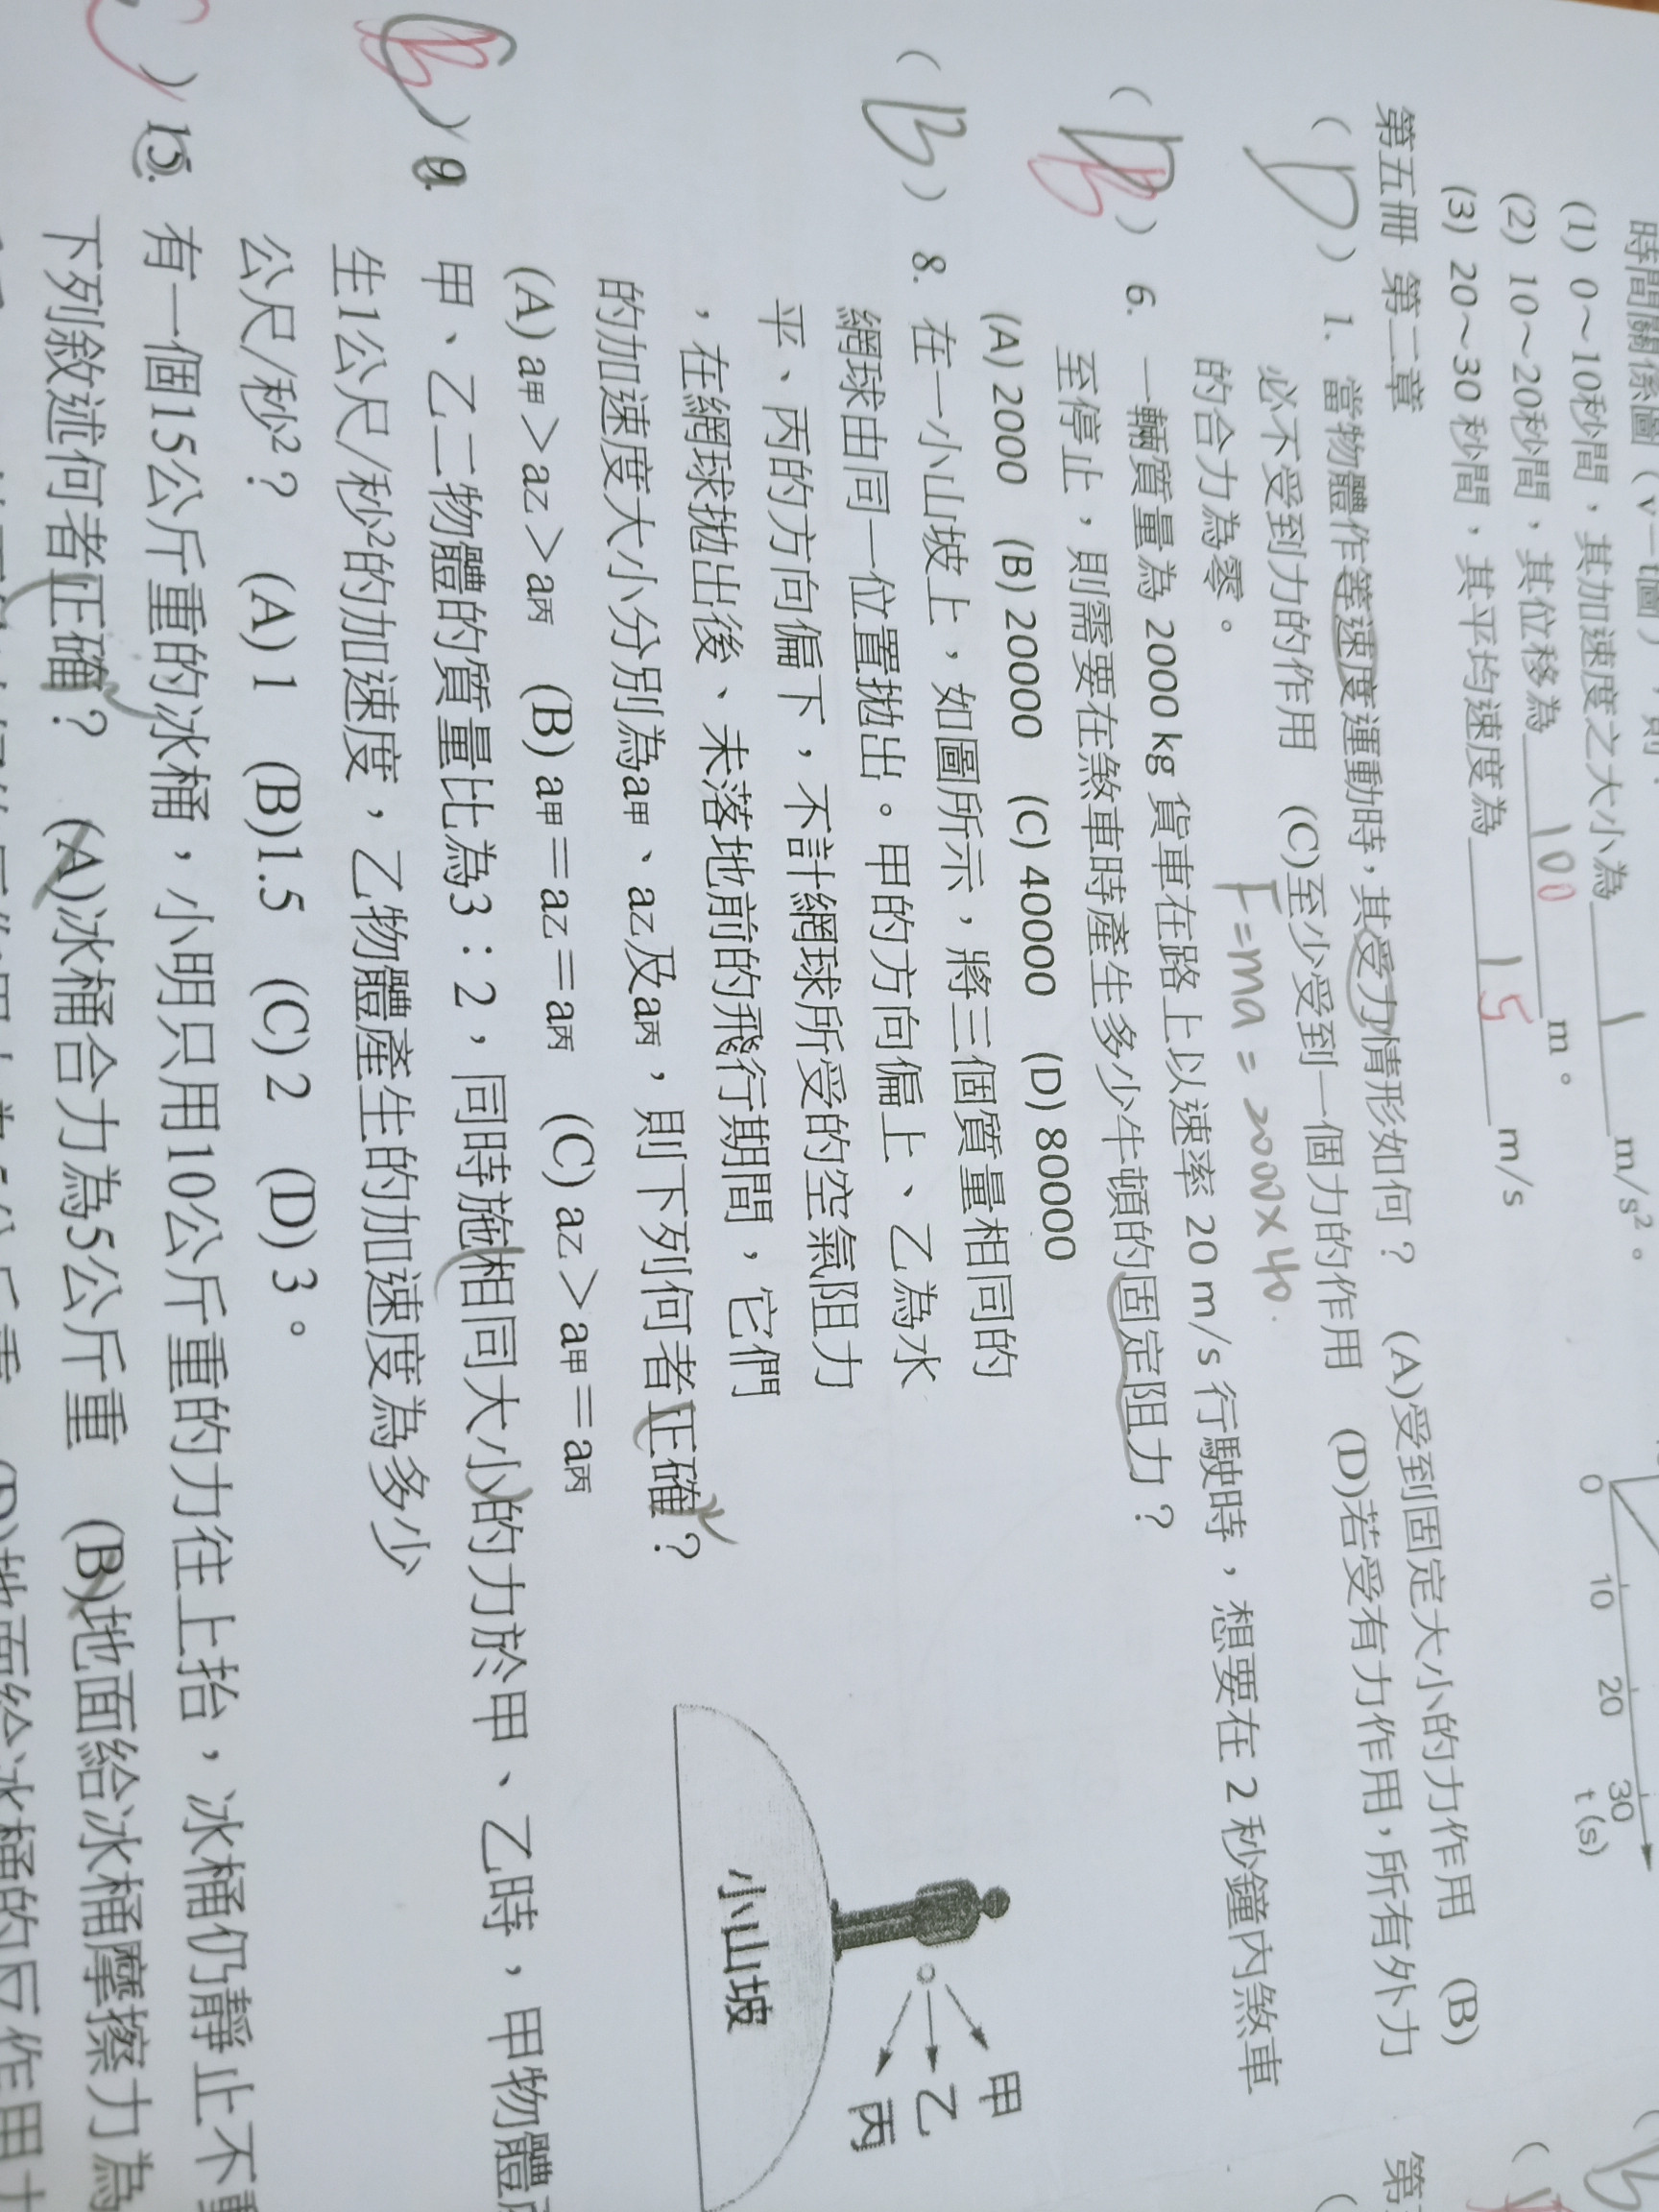 時間關係圖(v-t圖),則:
(1) 0~10秒間,其加速度之大小為 1 m/s²。
(2) 10~20秒間,其位移為 100 m。
(3) 20~30 秒間,其平均速度為 15 m/s
0 10 20 30
t (s)
第五冊 第二章
( D ) 1. 當物體作等速度運動時,其受力情形如何? (A)受到固定大小的力作用 (B)
必不受到力的作用 (C)至少受到一個力的作用 (D)若受有力作用,所有外力
的合力為零。
F=ma = 2000×40
( B ) 6. 一輛質量為 2000 kg 貨車在路上以速率 20 m/s 行駛時,想要在 2 秒鐘內煞車
至停止,則需要在煞車時產生多少牛頓的固定阻力?
(A) 2000 (B) 20000 (C) 40000 (D) 80000
( B ) 8. 在一小山坡上,如圖所示,將三個質量相同的
網球由同一位置拋出。甲的方向偏上、乙為水
平、丙的方向偏下,不計網球所受的空氣阻力
,在網球拋出後、未落地前的飛行期間,它們
的加速度大小分別為a甲、a乙及a丙,則下列何者正確?
(A) a甲>a乙>a丙 (B) a甲=a乙=a丙 (C) a乙>a甲=a丙
甲
乙
丙
小山坡
( B ) 9. 甲、乙二物體的質量比為3:2,同時施相同大小的力於甲、乙時,甲物體產
生1公尺/秒²的加速度,乙物體產生的加速度為多少
公尺/秒²? (A) 1 (B)1.5 (C) 2 (D) 3。
) 15. 有一個15公斤重的冰桶,小明只用10公斤重的力往上抬,冰桶仍靜止不
下列敘述何者正確? (A)冰桶合力為5公斤重 (B)地面給冰桶摩擦力為
地面給冰桶的反作用力